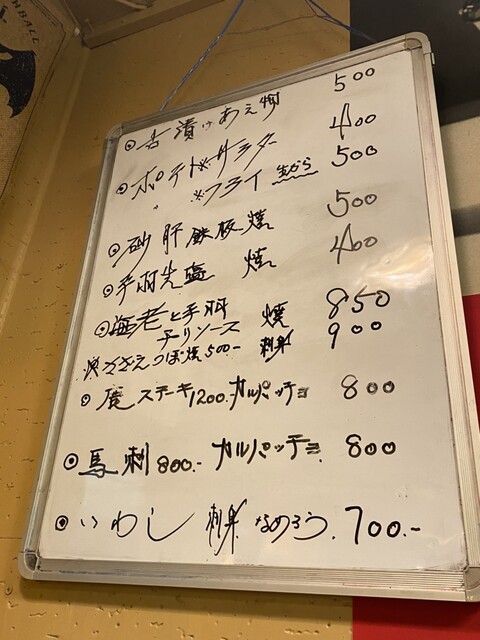 HBALL
◎ 古漬けあえ 500
◎ ポテト※サラダー 400
〃 ※フライ 生から 500
◎ 砂肝鉄板焼 500
◎ 手羽先塩焼 400
◎ 海老と手羽 焼 850
チリソース 刺身 900
さざえつぼ焼500-
◎ 鹿ステーキ1200. カルパッチョ 800
◎ 馬刺800.- カルパッチョ 800
◎ いわし 刺身 なめろう. 700.-